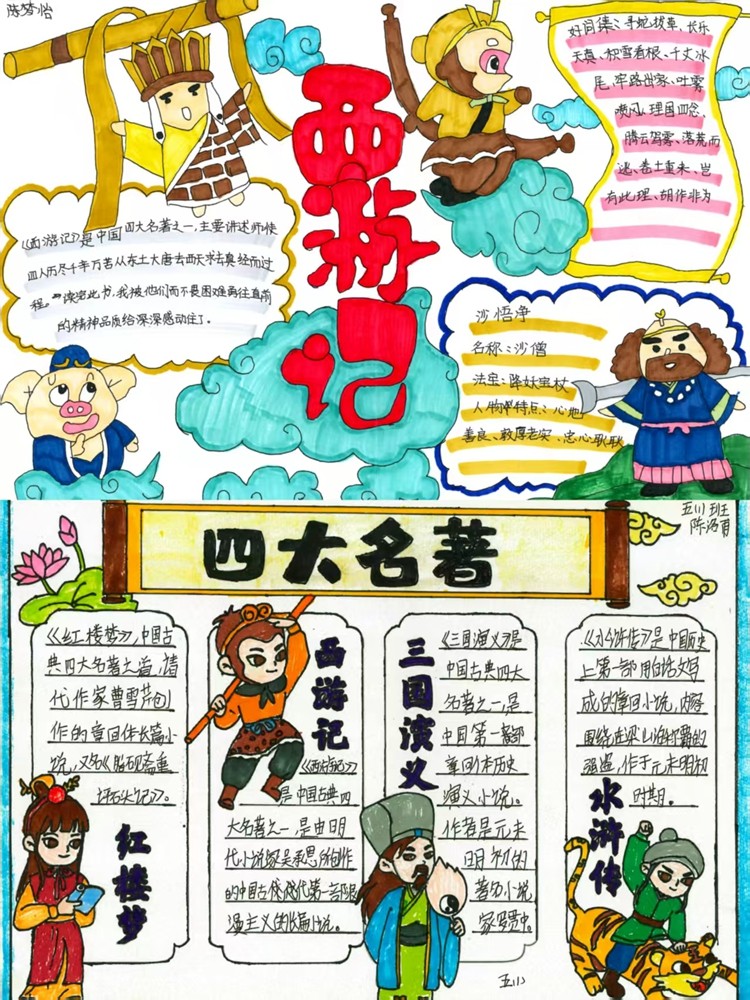 陈梦怡
西游记
好问集：寻蛇拔草、长乐
天真、积雪看根、千丈冰
尾、牢路出家、吐雾
喷风、理国四念、
腾云驾雾、落荒而
逃、卷土重来、岂
有此理、胡作非为
《西游记》是中国四大名著之一，主要讲述师徒
四人历尽千辛万苦从东土大唐去西天求取真经而过
程。读完此书，我被他们而不畏困难勇往直前
的精神品质给深深感动住了。
沙悟净
名称：沙僧
法宝：降妖宝杖
人物特点：心地
善良、敦厚老实、忠心耿耿
四大名著
五(1)班
《红楼梦》，中国古
典四大名著之首，清
代作家曹雪芹创
作的章回体长篇小
说，又名《脂砚斋重
评石头记》。
红楼梦
西游记
《西游记》
是中国古典四
大名著之一，是由明
代小说家吴承恩所创作
的中国古代第一部浪
漫主义的长篇小说。
三国演义
《三国演义》是
中国古典四大
名著之一，是
中国第一部
章回体历史
演义小说。
作者是元末
明初的
著名小说
家罗贯中。
《水浒传》是中国历史
上第一部用白话文写
成的章回小说，内容
围绕在梁山泊称霸的
强盗，作于元末明初
时期。
水浒传
五(1)